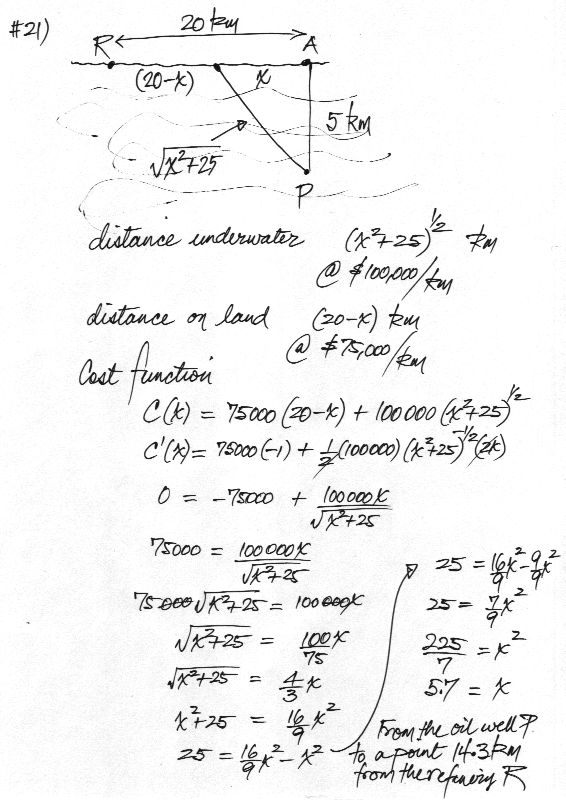 #21)
20 km
R A
(20-x) x
5 km
√x²+25
P
distance underwater (x²+25)^1/2 km
@ $100,000/km
distance on land (20-x) km
@ $75,000/km
Cost function
C(x) = 75000(20-x) + 100000(x²+25)^1/2
C'(x) = 75000(-1) + 1/2(100000)(x²+25)^-1/2(2x)
0 = -75000 + 100000x/√x²+25
75000 = 100000x/√x²+25
75000√x²+25 = 100000x
√x²+25 = 100x/75
√x²+25 = 4/3 x
x²+25 = 16/9 x²
25 = 16/9 x² - x²
25 = 16/9 x² - 9/9 x²
25 = 7/9 x²
225/7 = x²
5.7 = x
From the oil well P
to a point 14.3 km
from the refinery R